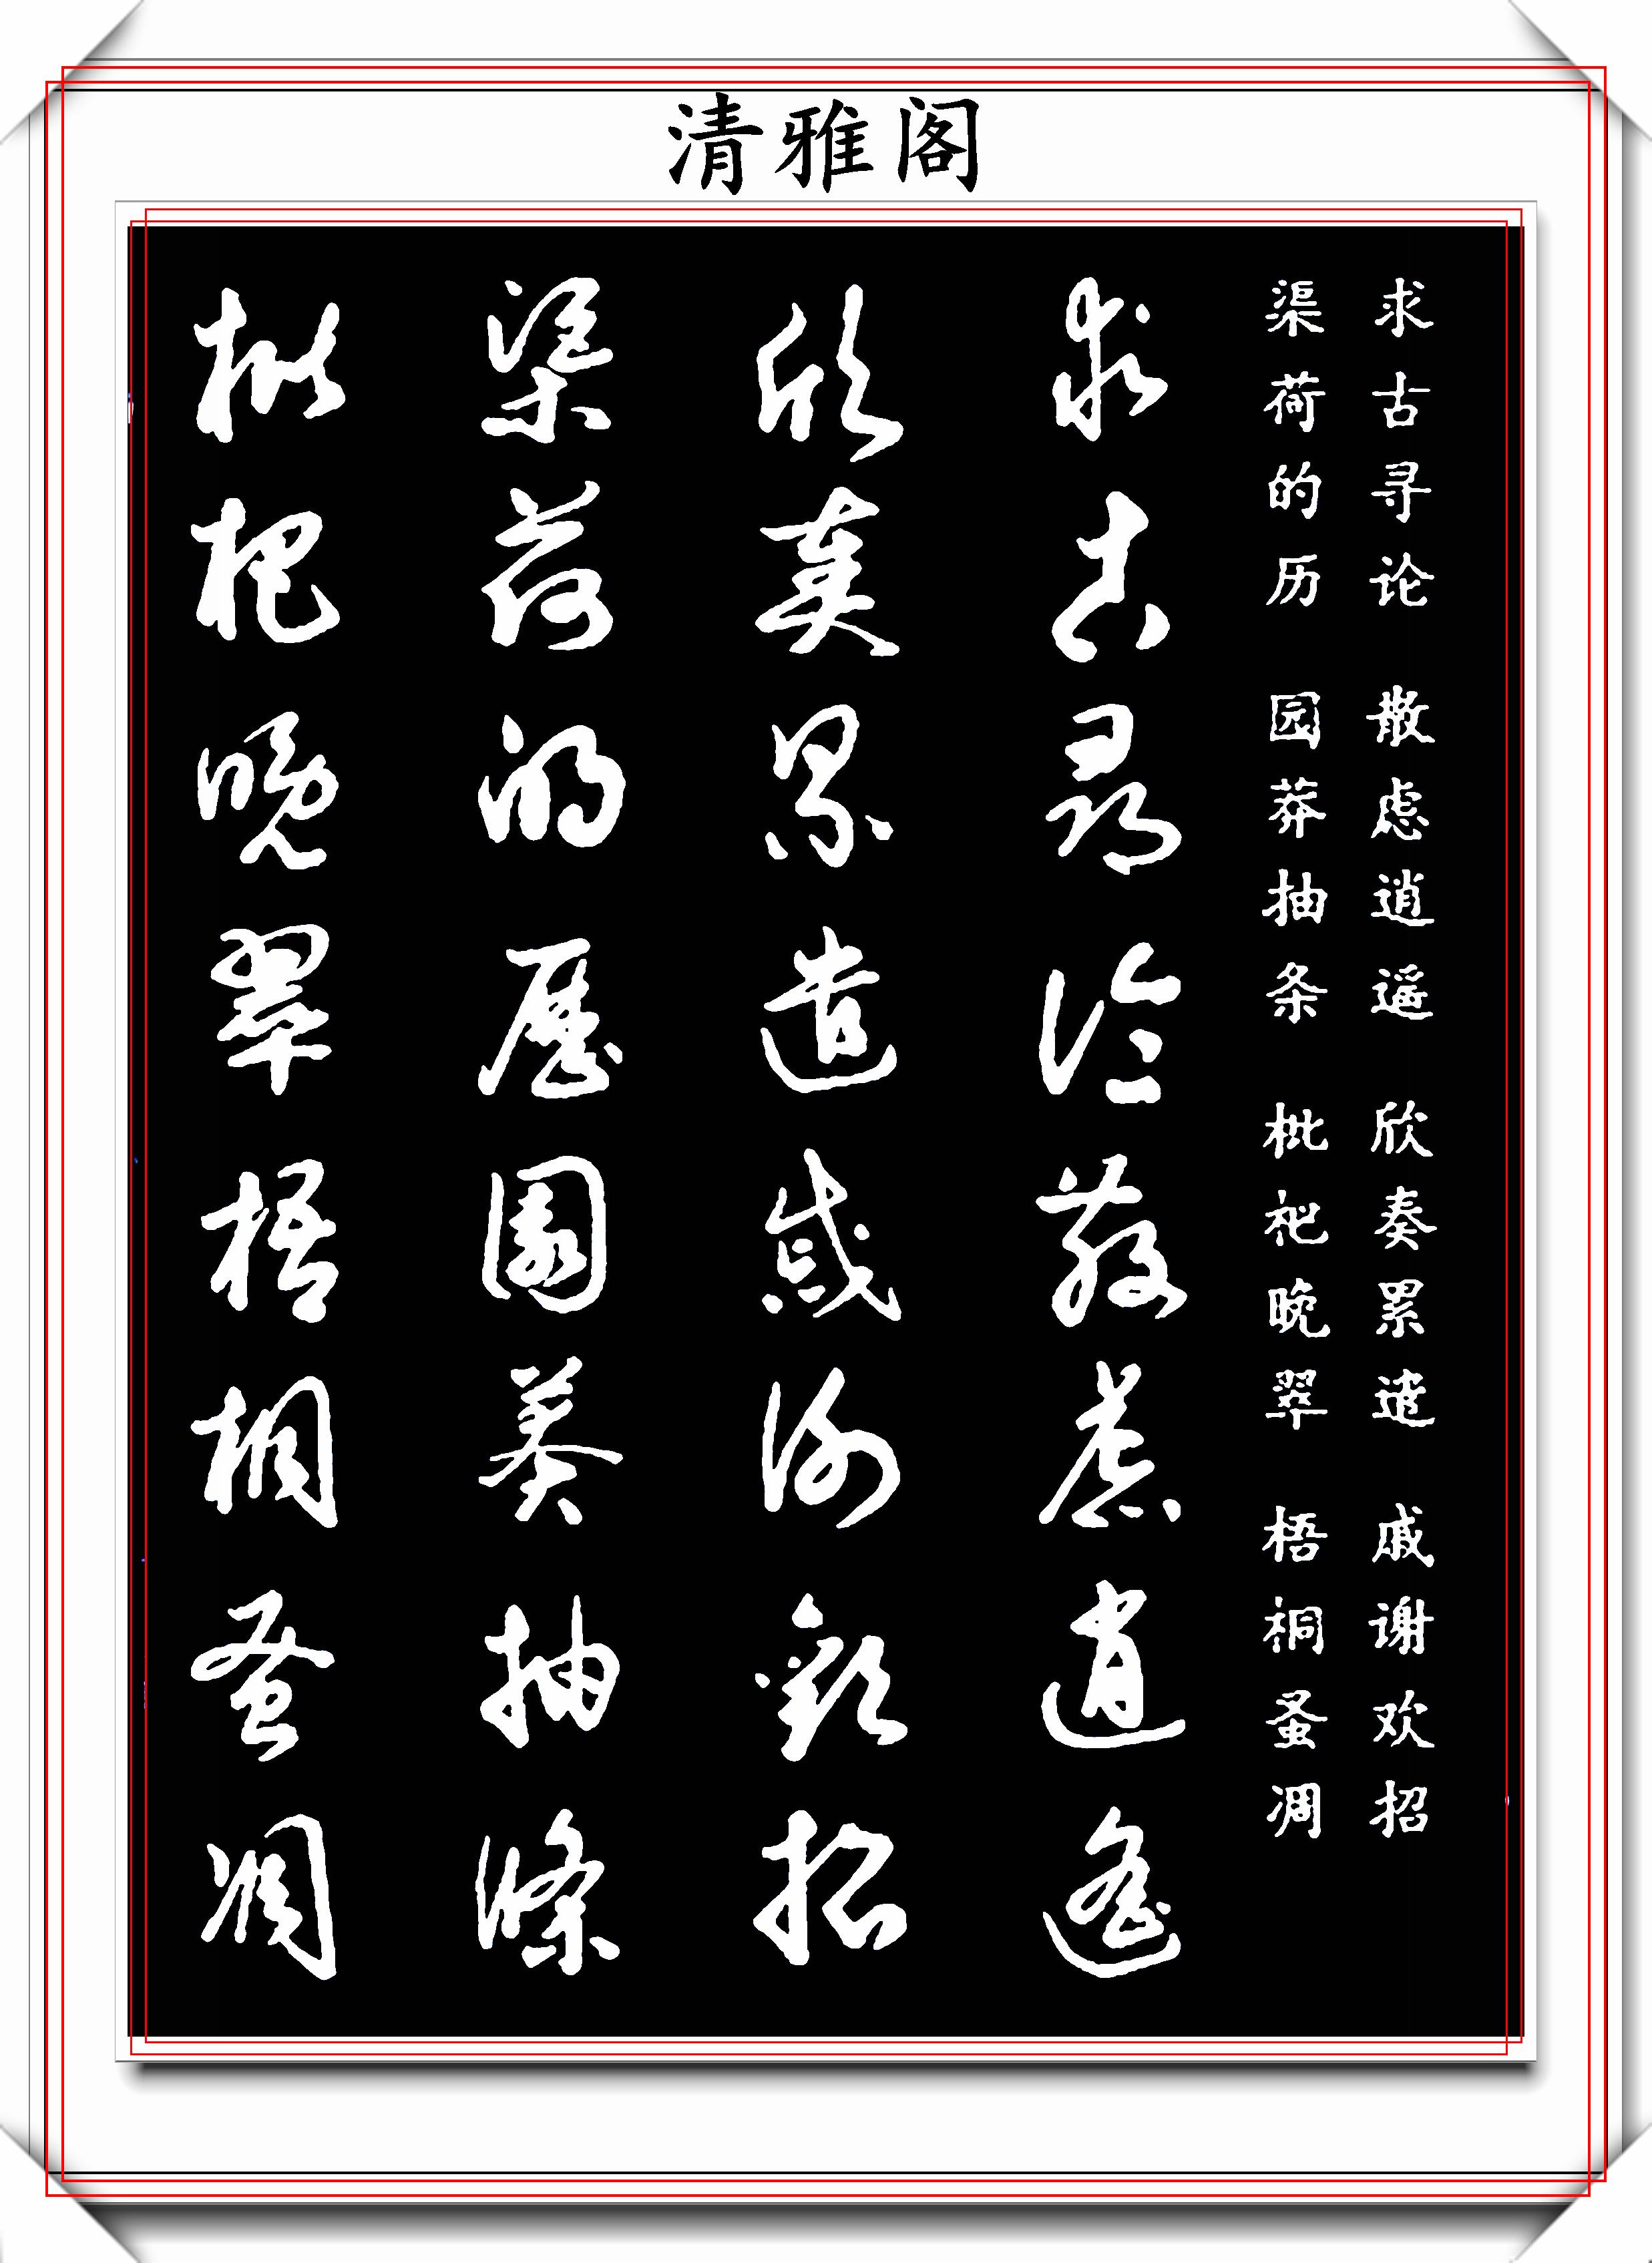 清雅阁
求古寻论 散虑逍遥 欣奏累遣 戚谢欢招
渠荷的历 园莽抽条 枇杷晚翠 梧桐蚤凋
求古尋論散慮逍遙
欣奏累遣慼謝歡招
渠荷的歷園莽抽條
枇杷晚翠梧桐蚤凋